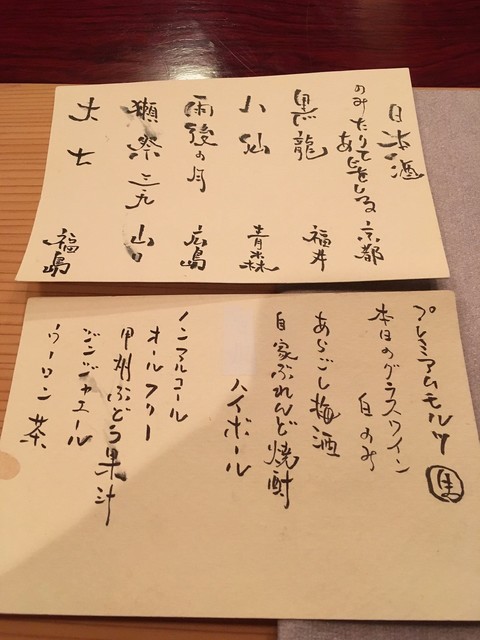 日本酒
のみたりてあとをしる 京都
黒龍 福井
八仙 青森
雨後の月 広島
獺祭 三九 山口
大七 福島
プレミアムモルツ 生
本日のグラスワイン
白のみ
あらごし梅酒
自家ぶれんど焼酎
ハイボール
ノンアルコール
オールフリー
甲州ぶどう果汁
ジンジャエール
ウーロン茶